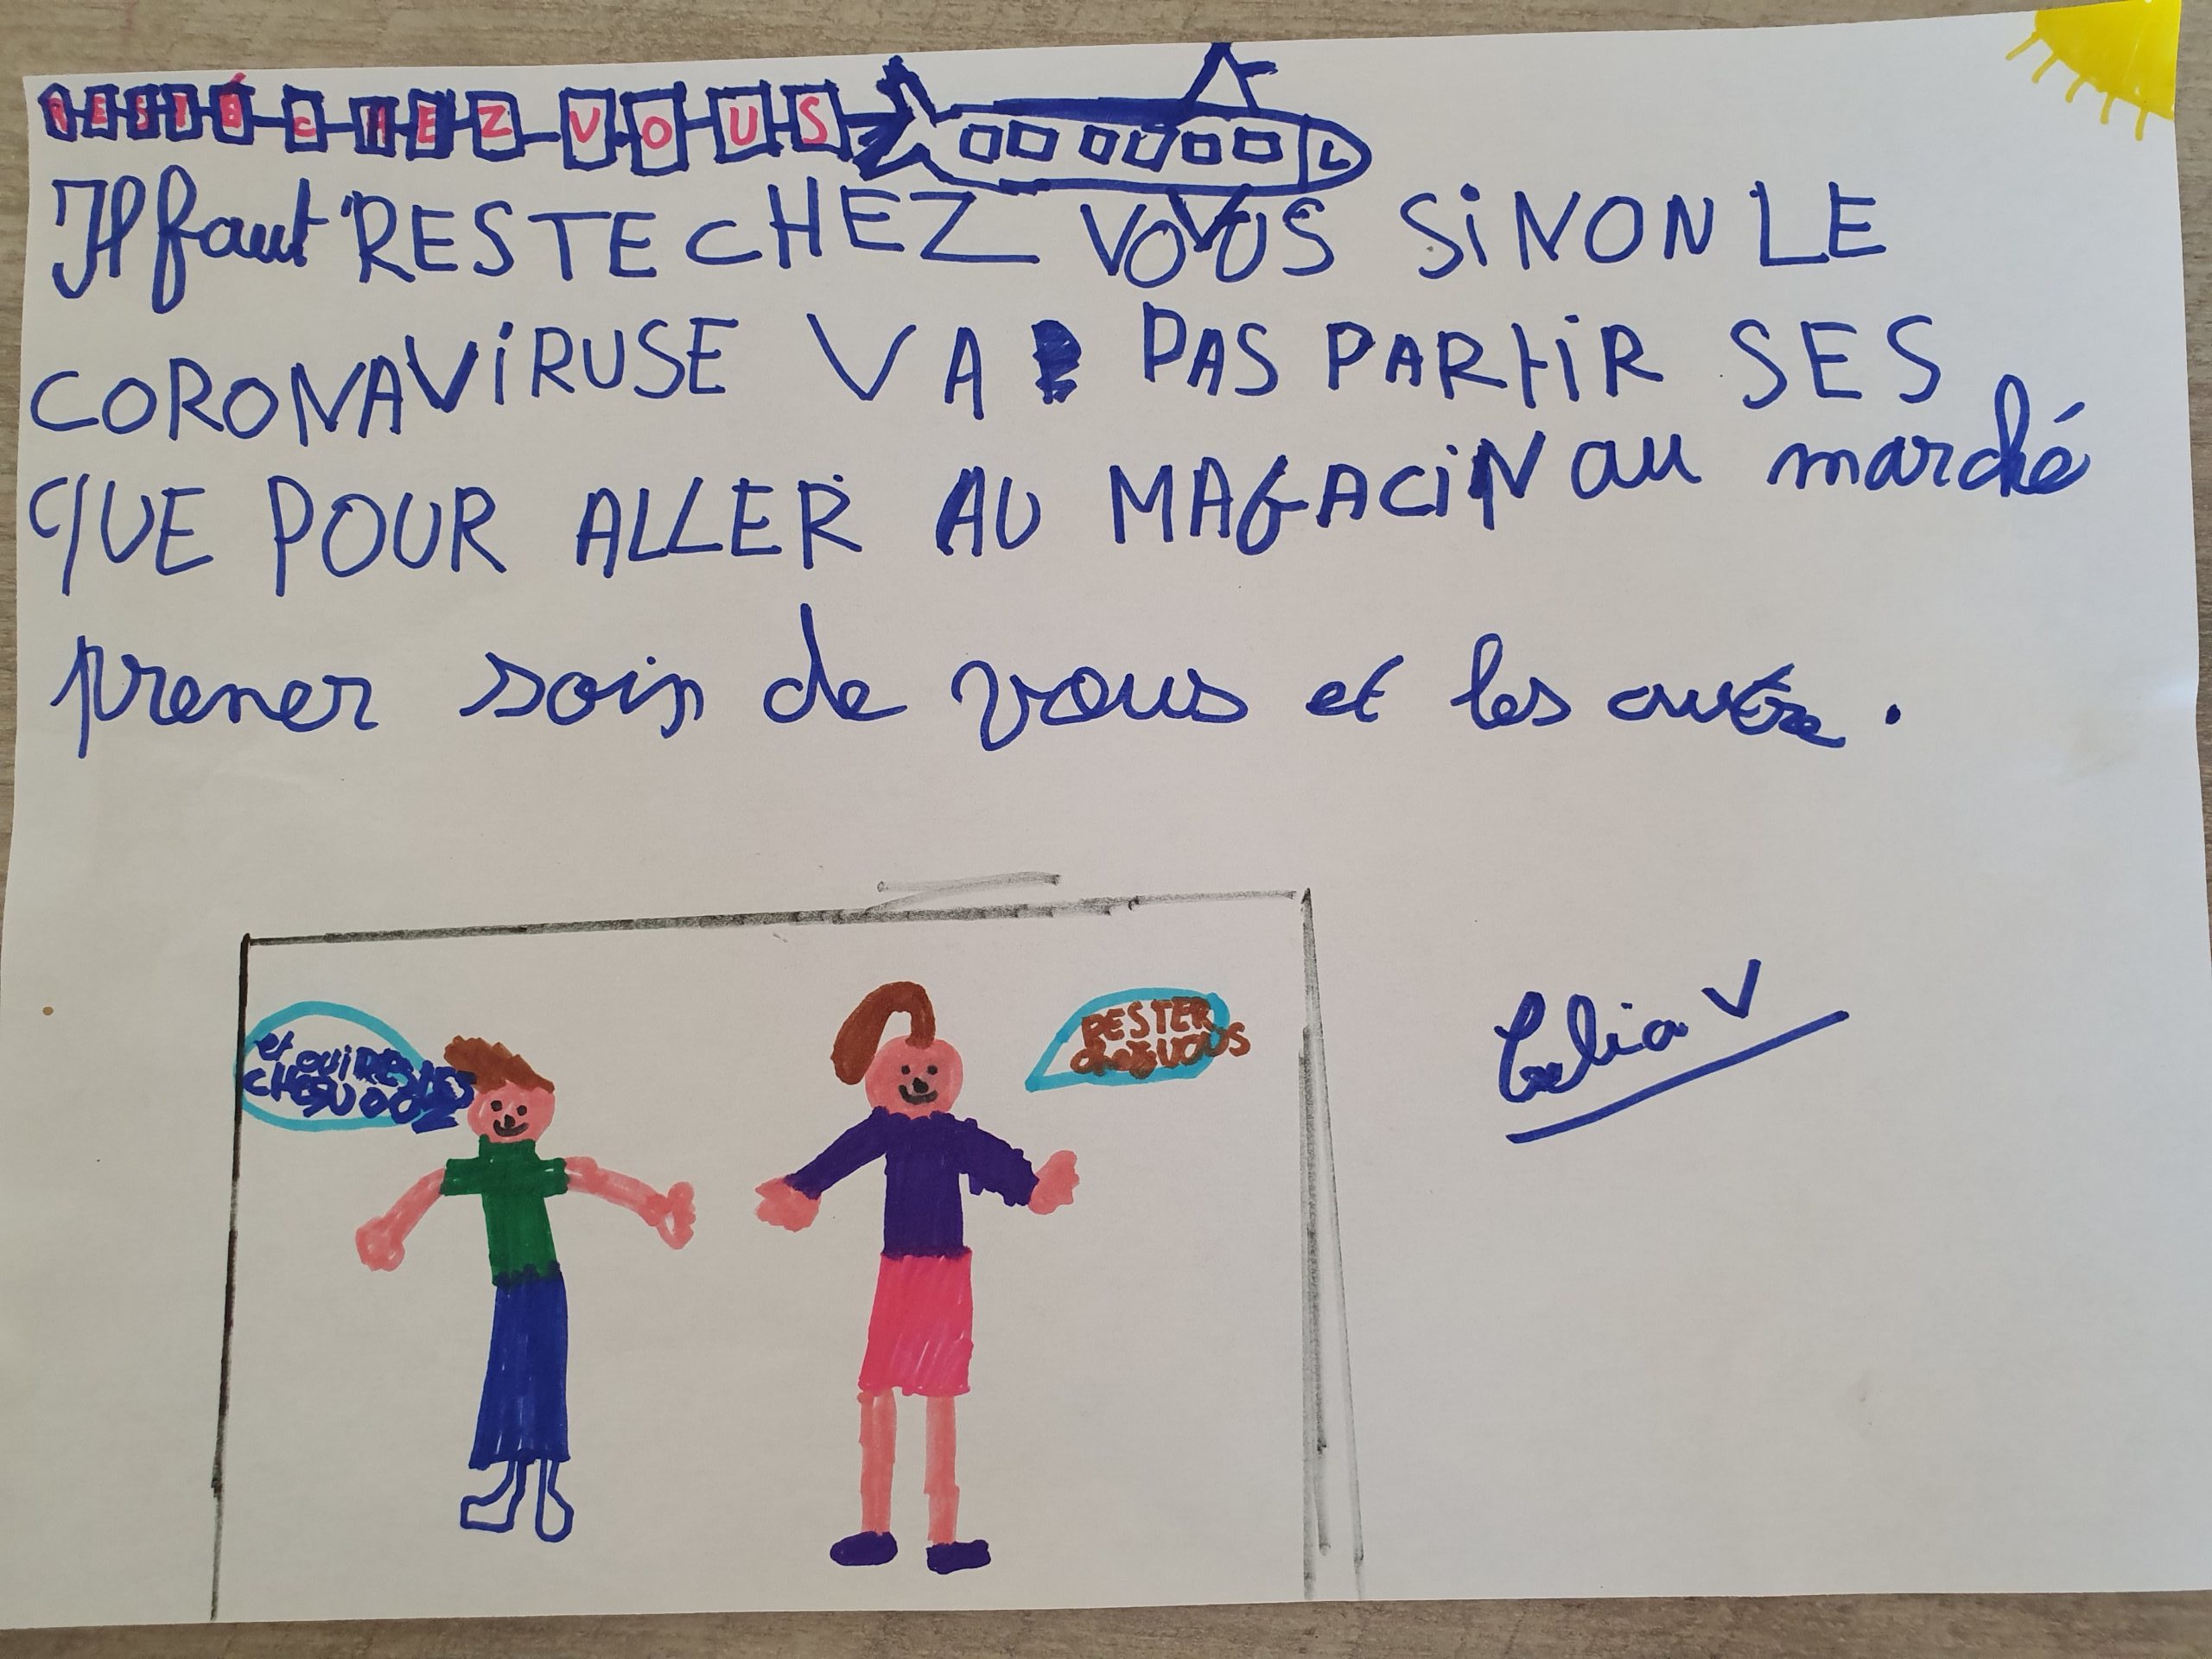 RESTÉ CHEZ VOUS
Il faut RESTE CHEZ VOUS SiNON LE
CORONAViRUSE VA PAS PARtiR SES
QUE POUR ALLER AU MAGACiN au marché
prener soin de vous et les autre.
et oui RESTES
CHEZ VOUS
RESTER
chez VOUS
Celia V